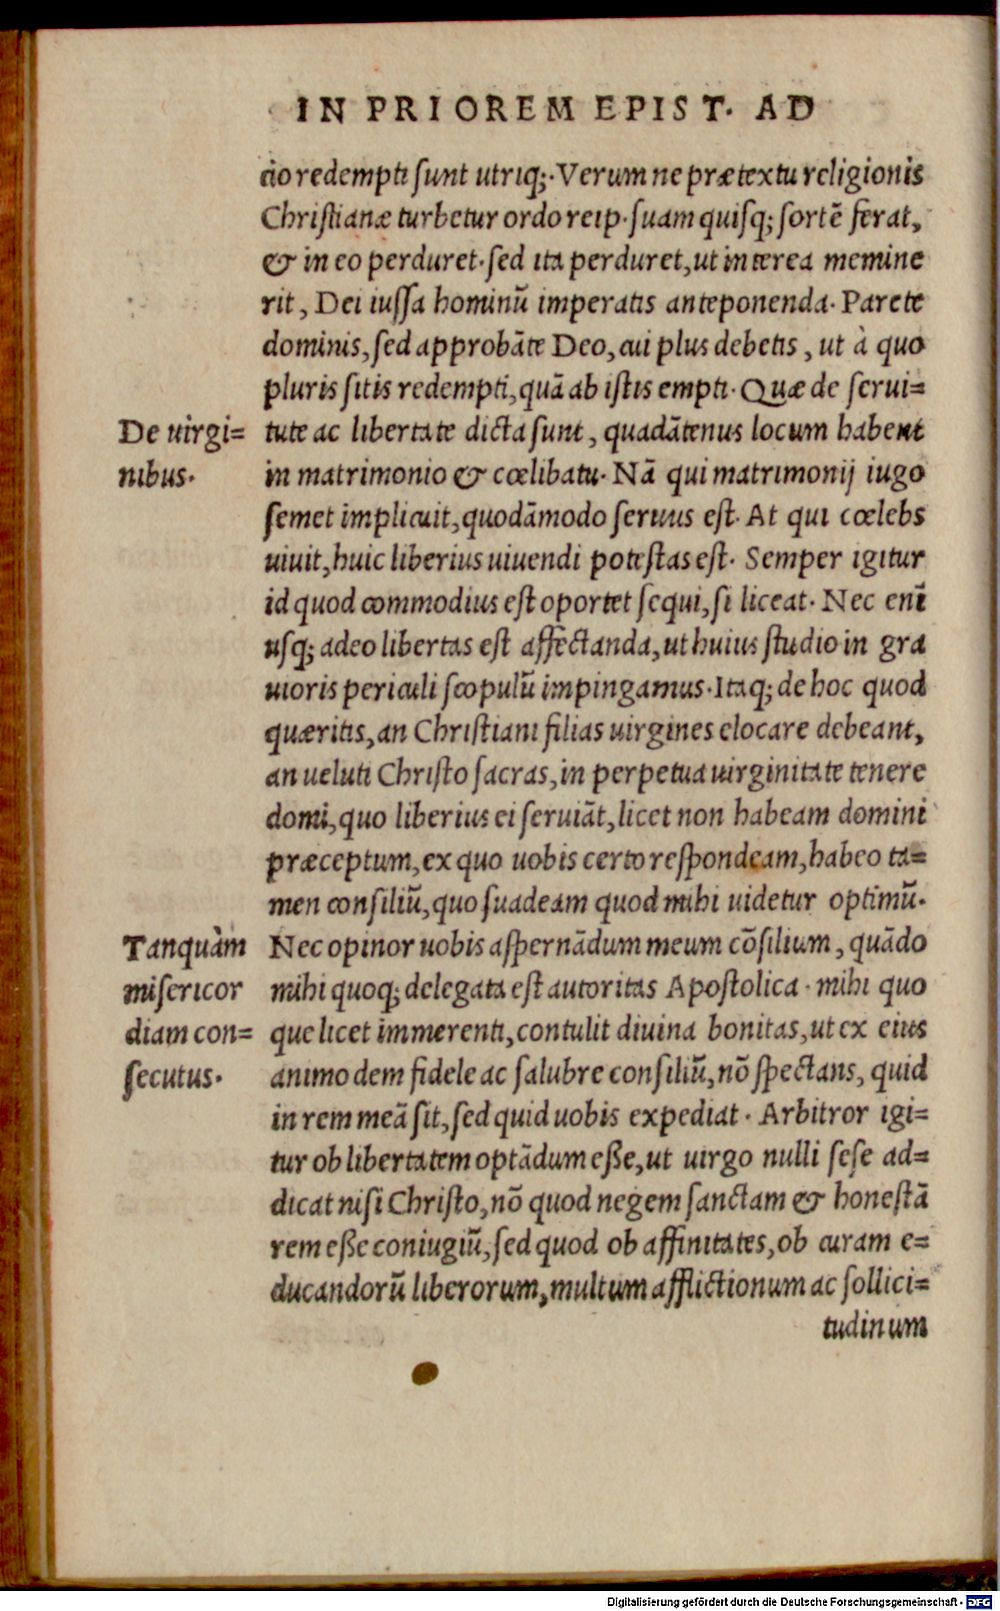 IN PRIOREM EPIST. AD
cio redempti sunt utriq;. Verum ne prætextu religionis
Christianæ turbetur ordo reip. suam quisq; sortē ferat,
& in eo perduret. sed ita perduret, ut interea memine
rit, Dei iussa hominū imperatis anteponenda. Parete
dominis, sed approbāte Deo, cui plus debetis, ut à quo
pluris sitis redempti, quā ab istis empti. Quæ de serui=
De uirgi=
nibus.
tute ac libertate dicta sunt, quadātenus locum habent
in matrimonio & cœlibatu. Nā qui matrimonij iugo
semet implicuit, quodāmodo seruus est. At qui cœlebs
uiuit, huic liberius uiuendi potestas est. Semper igitur
id quod commodius est oportet sequi, si liceat. Nec enī
usq; adeo libertas est affectanda, ut huius studio in gra
uioris periculi scopulū impingamus. Itaq; de hoc quod
quæritis, an Christiani filias uirgines elocare debeant,
an ueluti Christo sacras, in perpetua uirginitate tenere
domi, quo liberius ei seruiāt, licet non habeam domini
præceptum, ex quo uobis certo respondeam, habeo ta=
men consiliū, quo suadeam quod mihi uidetur optimū.
Tanquàm
misericor
diam con=
secutus.
Nec opinor uobis aspernādum meum cōsilium, quādo
mihi quoq; delegata est autoritas Apostolica. mihi quo
que licet immerenti, contulit diuina bonitas, ut ex eius
animo dem fidele ac salubre consiliū, nō spectans, quid
in rem meā sit, sed quid uobis expediat. Arbitror igi=
tur ob libertatem optādum eße, ut uirgo nulli sese ad=
dicat nisi Christo, nō quod negem sanctam & honestā
rem eße coniugiū, sed quod ob affinitates, ob curam e=
ducandorū liberorum, multum afflictionum ac sollici=
tudinum
Digitalisierung gefördert durch die Deutsche Forschungsgemeinschaft - DFG